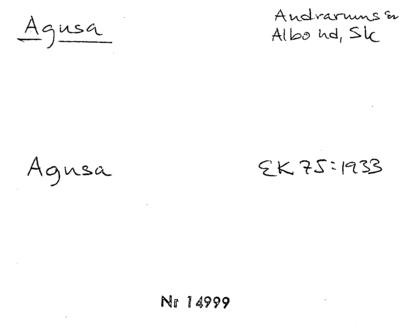 Agusa
Andrarums sn
Albo hd, Sk
Agusa
EK 75:1933
Nr 14999